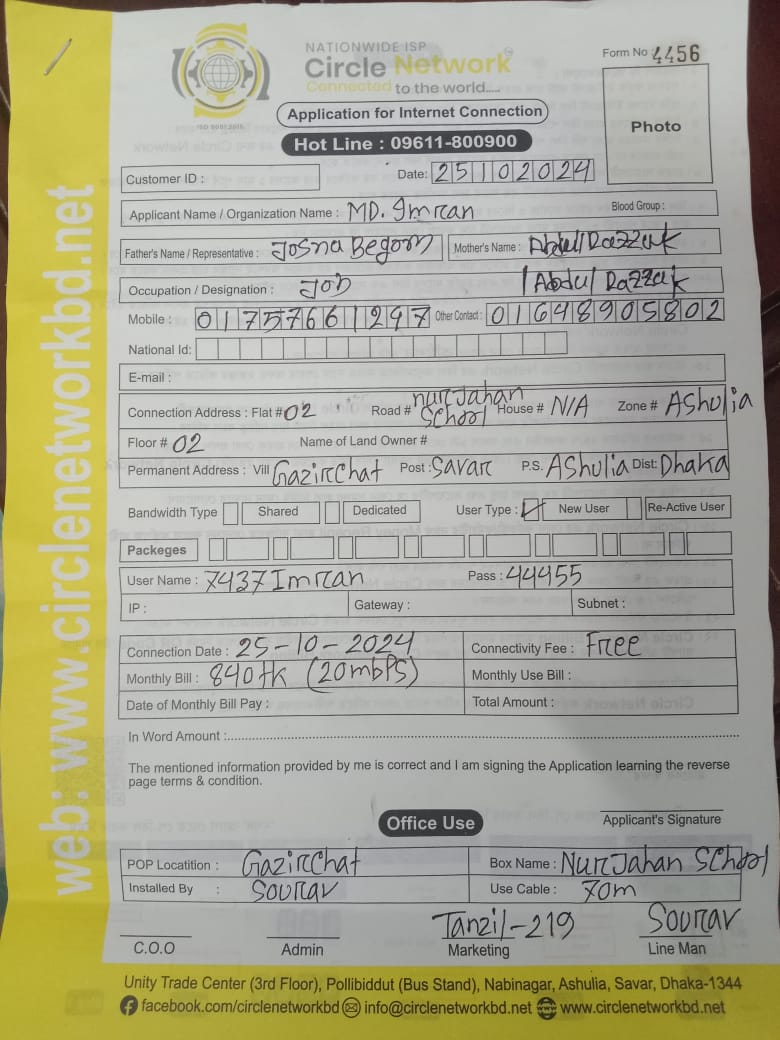 NATIONWIDE ISP
Circle Network
Connected to the world.....
ISO 9001:2015
Form No 4456
Application for Internet Connection
Hot Line : 09611-800900
Photo
Customer ID :
Date: 25102024
Applicant Name / Organization Name : MD. Imran
Blood Group :
Father's Name / Representative : Josna Begom
Mother's Name : Abdul Razzak
Occupation / Designation : Job
/ Abdul Razzak
Mobile : 01757661297
Other Contact : 01648905802
National Id:
E-mail :
Connection Address : Flat # 02 Road # nurjahan School House # N/A Zone # Ashulia
Floor # 02 Name of Land Owner #
Permanent Address : Vill Gazirchat Post : Savar P.S. Ashulia Dist: Dhaka
Bandwidth Type Shared Dedicated User Type : New User Re-Active User
Packeges
User Name : 7437Imran Pass : 44455
IP : Gateway : Subnet :
Connection Date : 25-10-2024 Connectivity Fee : Free
Monthly Bill : 840tk (20mbps) Monthly Use Bill :
Date of Monthly Bill Pay : Total Amount :
In Word Amount :
The mentioned information provided by me is correct and I am signing the Application learning the reverse
page terms & condition.
Applicant's Signature
Office Use
POP Locatition : Gazirchat Box Name : Nurjahan School
Installed By : Sourav Use Cable : 70m
Tanzil-219 Sourav
C.O.O Admin Marketing Line Man
Unity Trade Center (3rd Floor), Pollibiddut (Bus Stand), Nabinagar, Ashulia, Savar, Dhaka-1344
facebook.com/circlenetworkbd info@circlenetworkbd.net www.circlenetworkbd.net
web: www.circlenetworkbd.net